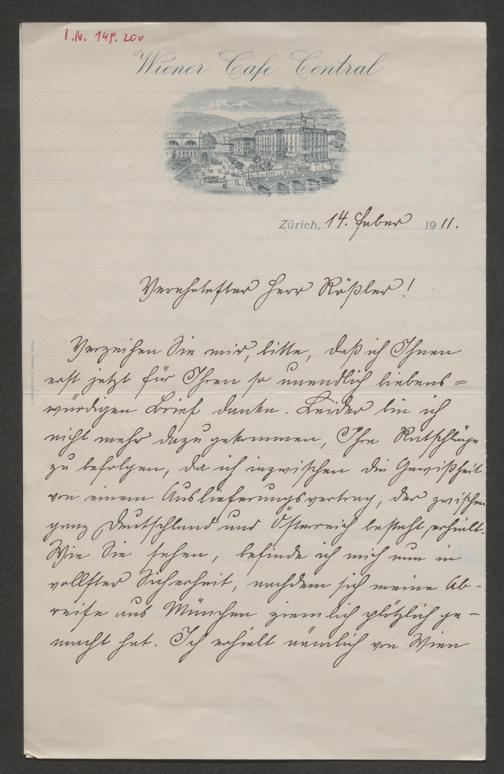 I.N. 149.200
Wiener Cafe Central
Zürich, 14. Feber 1911.
Verehrtester Herr Rößler!
Verzeihen Sie mir, bitte, daß ich Ihnen
erst jetzt für Ihren so unendlich liebens=
würdigen Brief danke. Leider bin ich
nicht mehr dazu gekommen, Ihre Ratschläge
zu befolgen, da ich inzwischen die Gewißheit
von einem Auslieferungsvertrag, der zwischen
ganz Deutschland und Österreich besteht, erhielt.
Wie Sie sehen, befinde ich mich nun in
vollster Sicherheit, nachdem sich meine Ab-
reise aus München ziemlich plötzlich ge-
macht hat. Ich erhielt nämlich von Wien